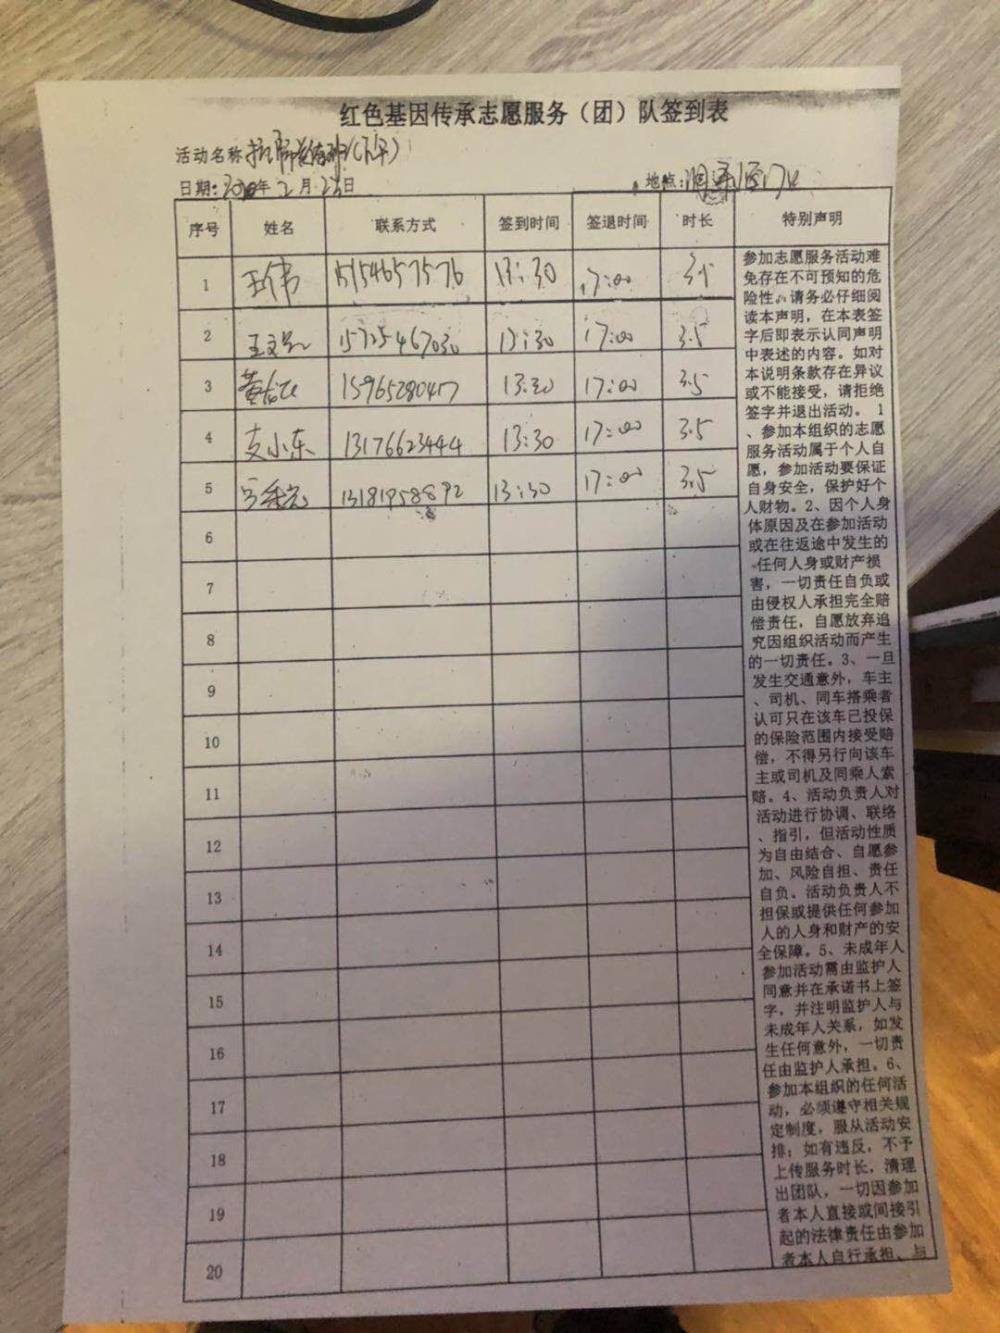 红色基因传承志愿服务（团）队签到表
活动名称 (下午)
日期: 年 2 月 日 地点:
序号 姓名 联系方式 签到时间 签退时间 时长 特别声明
1 王伟 15154657576 13:30 17:00 3.5
2 15725467030 13:30 17:00 3.5
3 15965280417 13:30 17:00 3.5
4 支小东 13176623444 13:30 17:00 3.5
5 13181958892 13:30 17:00 3.5
6
7
8
9
10
11
12
13
14
15
16
17
18
19
20
参加志愿服务活动难
免存在不可预知的危
险性。请务必仔细阅
读本声明，在本表签
字后即表示认同声明
中表述的内容。如对
本说明条款存在异议
或不能接受，请拒绝
签字并退出活动。 1
、参加本组织的志愿
服务活动属于个人自
愿，参加活动要保证
自身安全，保护好个
人财物。2、因个人身
体原因及在参加活动
或在往返途中发生的
任何人身或财产损
害，一切责任自负或
由侵权人承担完全赔
偿责任，自愿放弃追
究因组织活动而产生
的一切责任。3、一旦
发生交通意外，车主
、司机、同车搭乘者
认可只在该车已投保
的保险范围内接受赔
偿，不得另行向该车
主或司机及同乘人索
赔。4、活动负责人对
活动进行协调、联络
、指引，但活动性质
为自由结合、自愿参
加、风险自担、责任
自负。活动负责人不
担保或提供任何参加
人的人身和财产的安
全保障。5、未成年人
参加活动需由监护人
同意并在承诺书上签
字，并注明监护人与
未成年人关系，如发
生任何意外，一切责
任由监护人承担。6、
参加本组织的任何活
动，必须遵守相关规
定制度，服从活动安
排；如有违反，不予
上传服务时长，清理
出团队，一切因参加
者本人直接或间接引
起的法律责任由参加
者本人自行承担、与